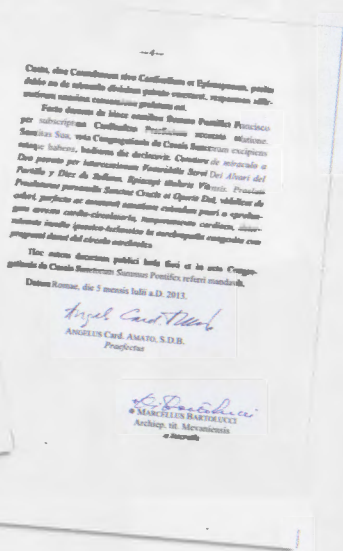 —4—
Custo, sive Consultorum sive Cardinalium et Episcoporum, posito
dubio an de miraculo divinitus patrato constaret, responsum affir-
mativum
Facta demum de hisce omnibus Summo Pontifici Francisco
per subscriptum Cardinalem Praefectum accurata relatione,
Sanctitas Sua, vota Congregationis de Causis Sanctorum excipiens
rataque habens, hodierno die declaravit: Constare de miraculo a
Deo patrato per intercessionem Venerabilis Servi Dei Alvari del
Portillo y Diez de Sollano, Episcopi titularis Vitensis, Praelati
Praelaturae personalis Sanctae Crucis et Operis Dei, videlicet de
celeri, perfecta ac constanti sanatione cuiusdam pueri a
arresto cardio-circulatorio,
Hoc autem decretum publici iuris fieri et in acta Congre-
gationis de Causis Sanctorum Summus Pontifex referri mandavit.
Datum Romae, die 5 mensis Iulii a.D. 2013.
Angelo Card. Amato
ANGELUS Card. AMATO, S.D.B.
Praefectus
MARCELLUS BARTOLUCCI
Archiep. tit. Mevaniensis
a secretis